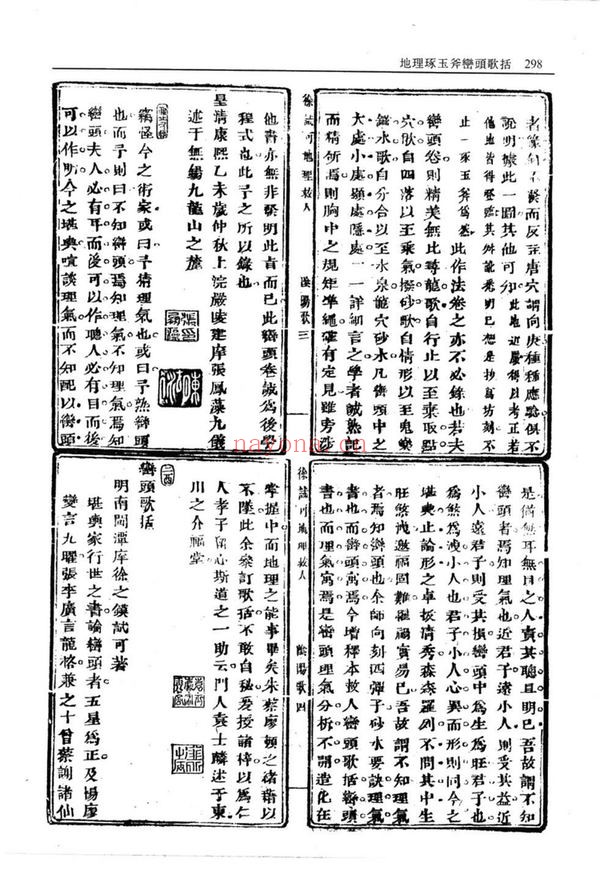 地理琢玉斧巒頭歌括 298
不發而反至唐穴謂向庚種種應驗俱不
說明據此一圖其他可知
止一琢玉斧爲然 此作法卷之亦不必錄也若夫
巒頭卷則精美無比尋龍歌自行止以至乘聚點
穴歌自四落以至乘氣撥砂歌自情形以至鬼樂
水歌自分合以至水泉龍穴砂水凡巒頭中之
大處小處顯處隱處一一詳細言之學者誠熟記
而精研焉則胸中之規矩準繩確有定見雖旁涉
徐試可地理救人 陰陽歌 三
他書亦無非發明此旨而已此巒頭卷誠爲後學
程式也此予之所以錄也
皇清康熙乙未歲仲秋上浣嚴陵建庠張鳳藻九儀
述于無錫九龍山之麓
竊怪今之術家或曰予精理氣也或曰予熟巒頭
也而予則曰不知巒頭焉知理氣不知理氣焉知
巒頭夫人必有耳而後可以作聽人必有目而後
可以作明今之堪輿嘖談理氣而不知配以巒頭
是猶無耳無目之人責其聰且明已吾故謂不知
巒頭者焉知理氣也近君子遠小人則受其益近
小人遠君子則受其損巒頭中爲生爲旺君子也
爲煞爲洩小人也君子小人心異而形則同今之
堪輿止論形之卓拔清秀森森羅列不問其中生
旺煞洩邀福固難罹禍實易已吾故謂不知理氣
者焉知巒頭也余師向刻四彈子砂水要訣理氣
書也而巒頭寓焉今增釋本救人巒頭歌括巒頭
書也而理氣寓焉是巒頭理氣分析不開造化在
徐試可地理救人 陰陽歌 四
掌握中而地理之能事畢矣朱蔡廖頓之諸藉以
不墜此余纂訂歌括不敢自秘爰授諸梓以爲仁
人孝子留心斯道之一助云門人袁士麟述于東
川之介福堂
巒頭歌括
明南閩潭庠徐之鏌試可著
堪輿家行世之書論巒頭者五星爲正及楊廖
變言九曜張李廣言龍格兼之十曾蔡謝諸仙